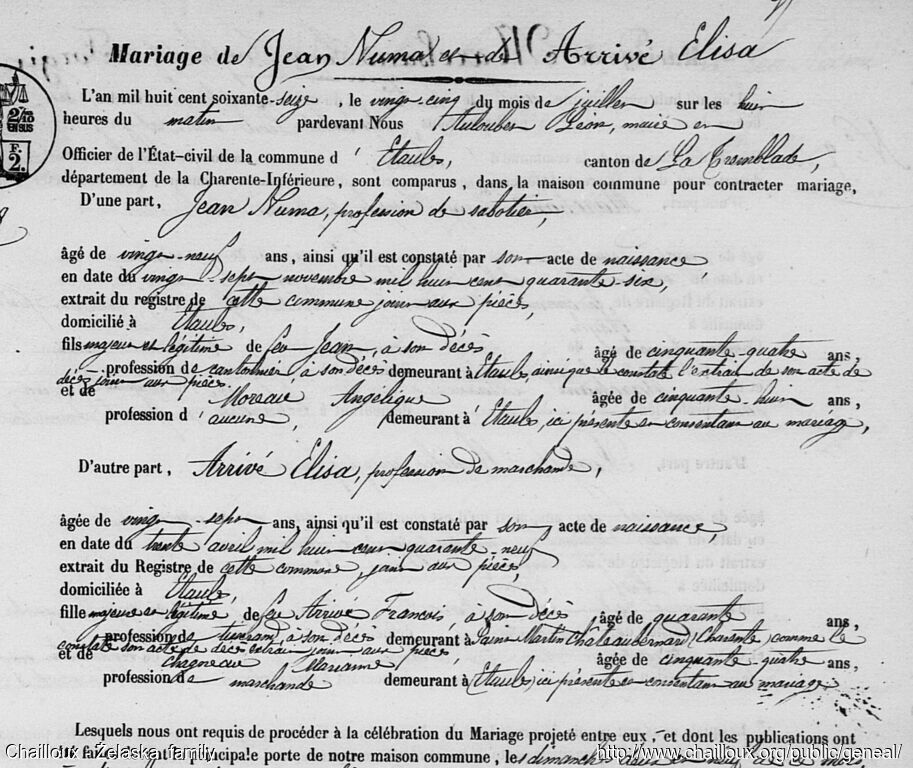 Mariage de Jean Numa et de Arrivé Elisa
2/10
EN SUS
F.
2.
L'an mil huit cent soixante-seize, le vingt cinq du mois de juillet sur les huit
heures du matin pardevant Nous Léon, maire et
Officier de l'État-civil de la commune d' Etaules, canton de La Tremblade,
département de la Charente-Inférieure, sont comparus, dans la maison commune pour contracter mariage,
D'une part, Jean Numa, profession de sabotier,
âgé de vingt-neuf ans, ainsi qu'il est constaté par son acte de naissance
en date du vingt-sept novembre mil huit cent quarante six,
extrait du registre de cette commune joint aux pièces,
domicilié à Etaules,
fils majeur et légitime de feu Jean, à son décès âgé de cinquante quatre ans,
profession de cantonnier à son décès demeurant à Etaules, ainsi que le constate l'extrait de son acte de
décès joint aux pièces.
et de Moreau Angélique âgée de cinquante-huit ans,
profession d' aucune, demeurant à Etaules, ici présente et consentant au mariage,
D'autre part, Arrivé Elisa, profession de marchande,
âgée de vingt-sept ans, ainsi qu'il est constaté par son acte de naissance,
en date du trente avril mil huit cent quarante-neuf
extrait du Registre de cette commune, joint aux pièces,
domiciliée à Etaules,
fille majeure et légitime de feu Arrivé François, à son décès, âgé de quarante ans,
profession de à son décès demeurant à Saint Martin Châteaubernard (Charente) comme le
constate son acte de décès extrait joint aux pièces,
et de Chagneau Marianne âgée de cinquante quatre ans,
profession de marchande demeurant à (Etaules) ici présente et consentant au mariage
Lesquels nous ont requis de procéder à la célébration du Mariage projeté entre eux, et dont les publications ont
principale porte de notre maison commune, les dimanches
Chailloux-Zelaska family
http://www.chailloux.org/public/geneal/